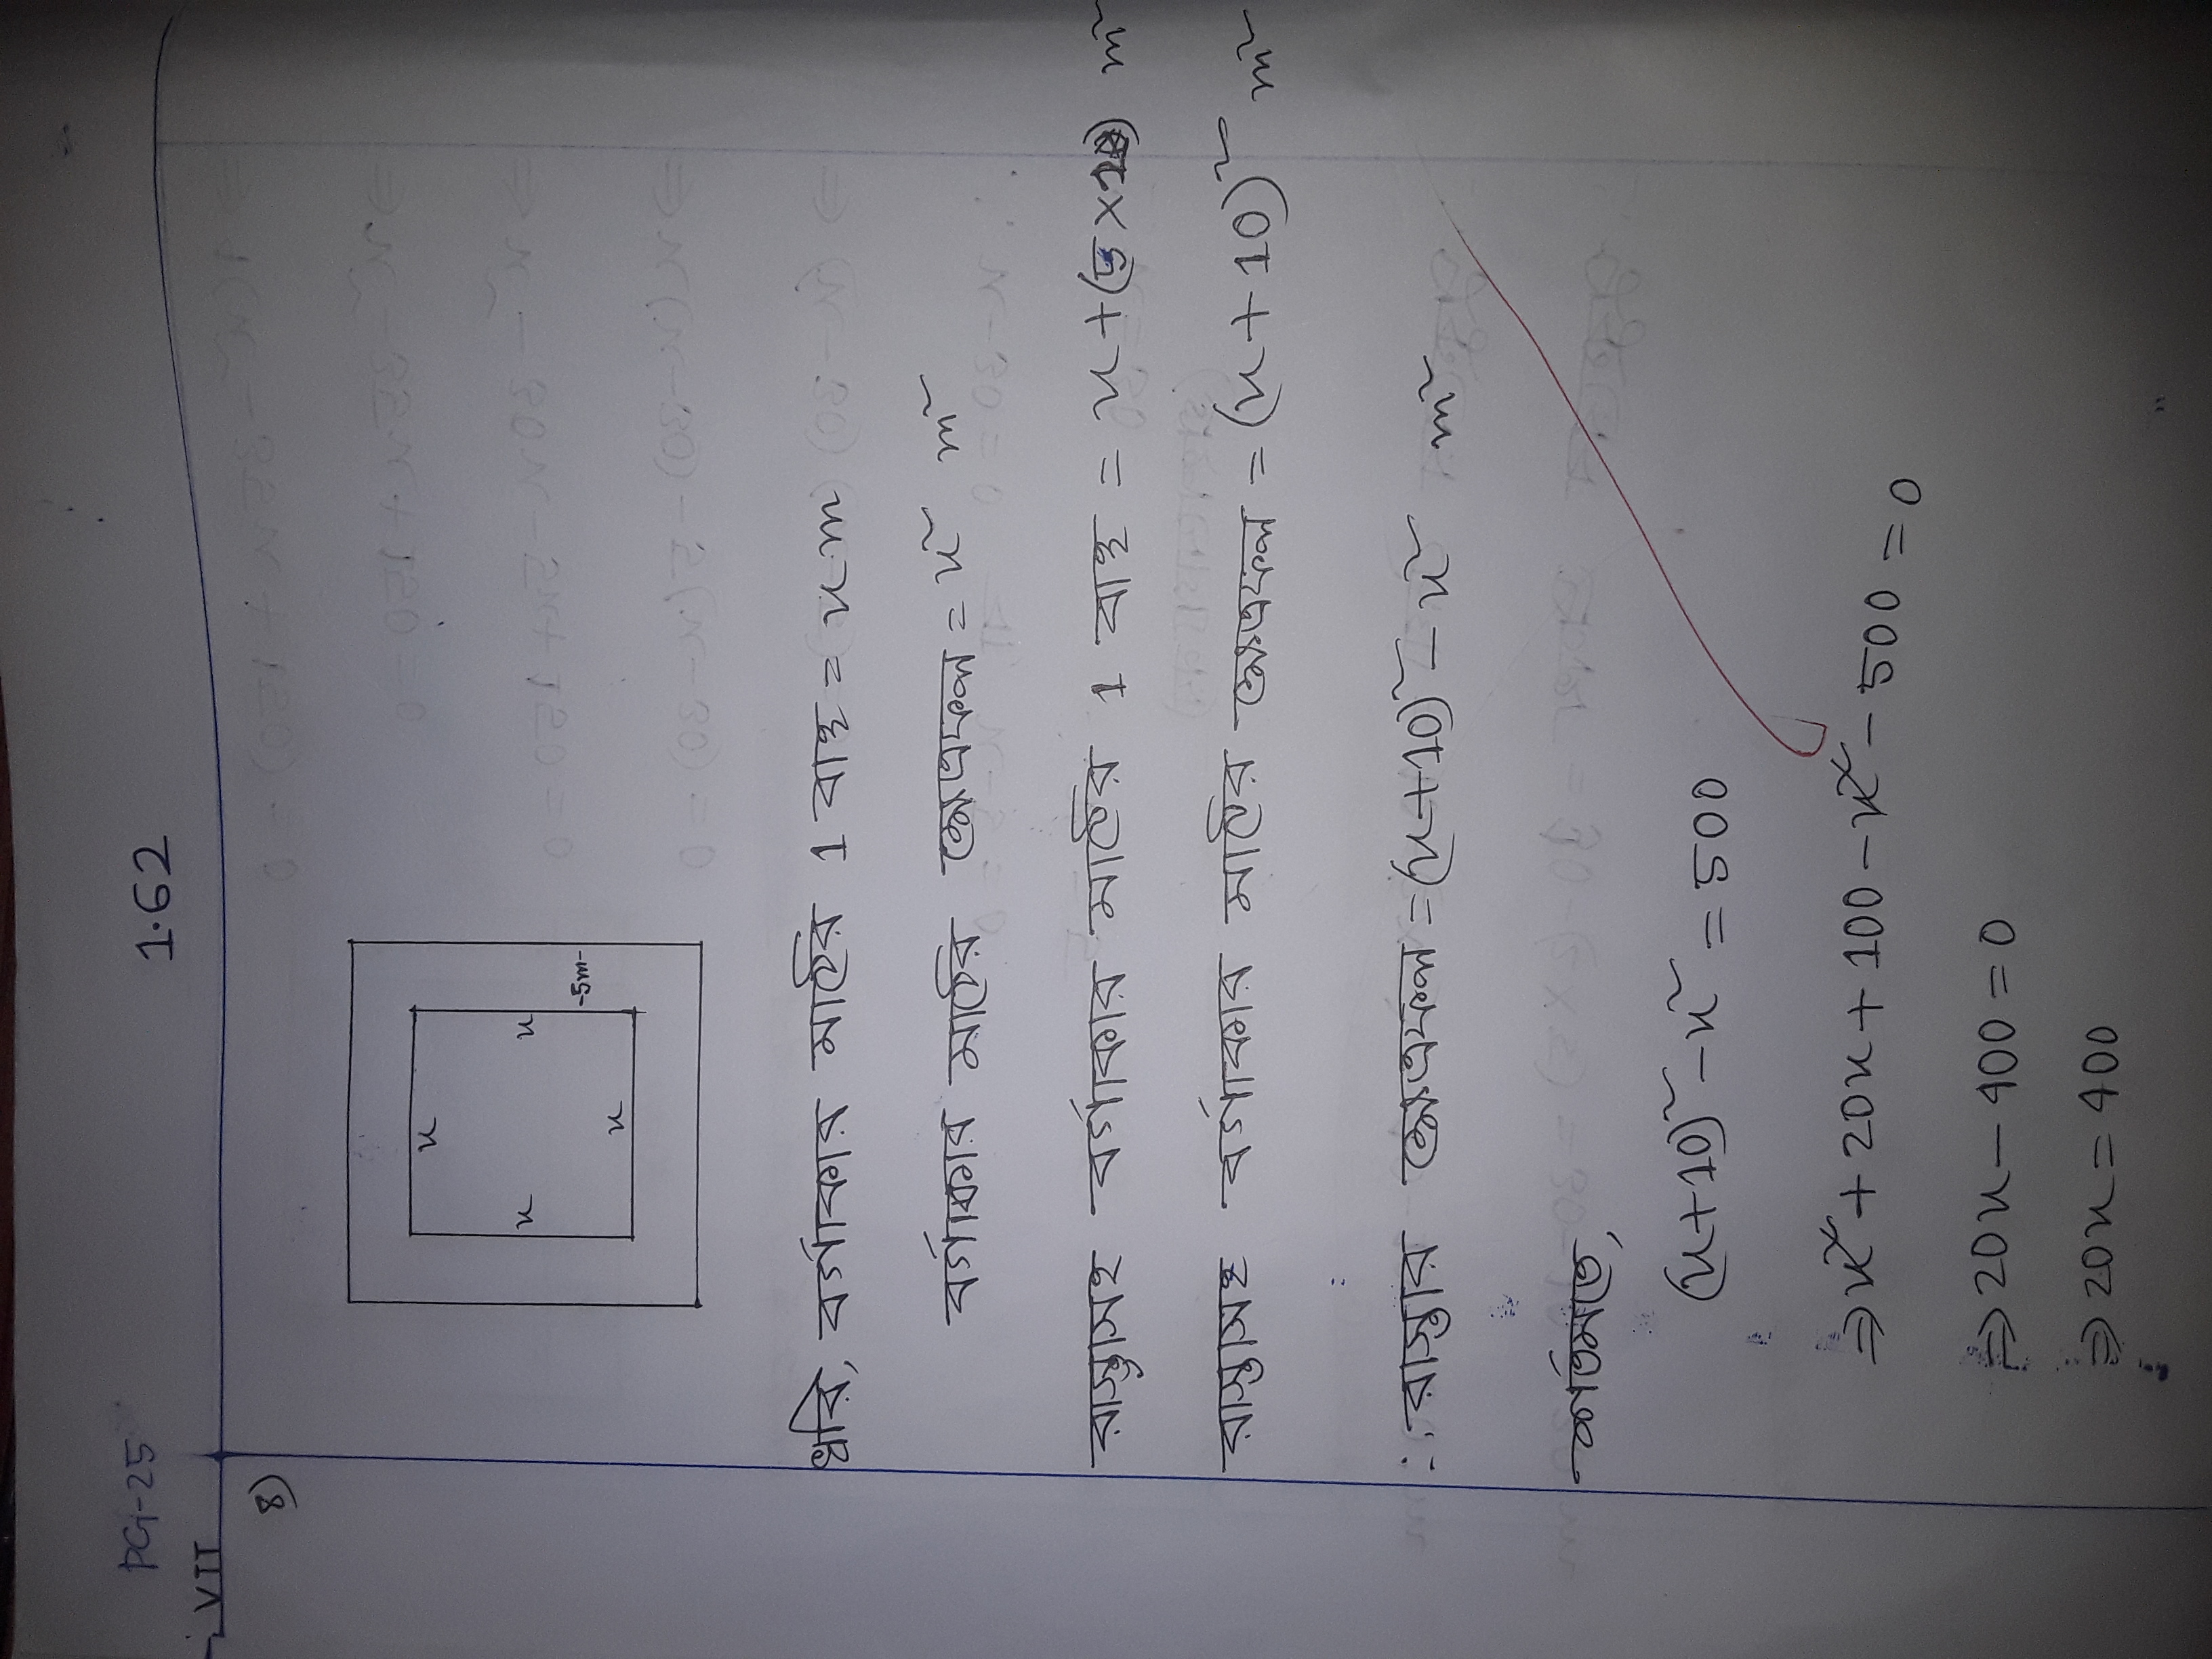 PG-25
1.62
VII
8)
x
x x
-5m-
x
ধরি, বর্গাকার মাঠের 1 বাহু = x m
বর্গাকার মাঠের ক্ষেত্রফল = x² m²
রাস্তাসহ বর্গাকার মাঠের 1 বাহু = x + (5×2) m²
রাস্তাসহ বর্গাকার মাঠের ক্ষেত্রফল = (x + 10)² m²
∴ রাস্তার ক্ষেত্রফল = (x+10)² - x² m²
শর্তমতে,
(x+10)² - x² = 500
⇒ x² + 20x + 100 - x² - 500 = 0
⇒ 20x - 400 = 0
⇒ 20x = 400